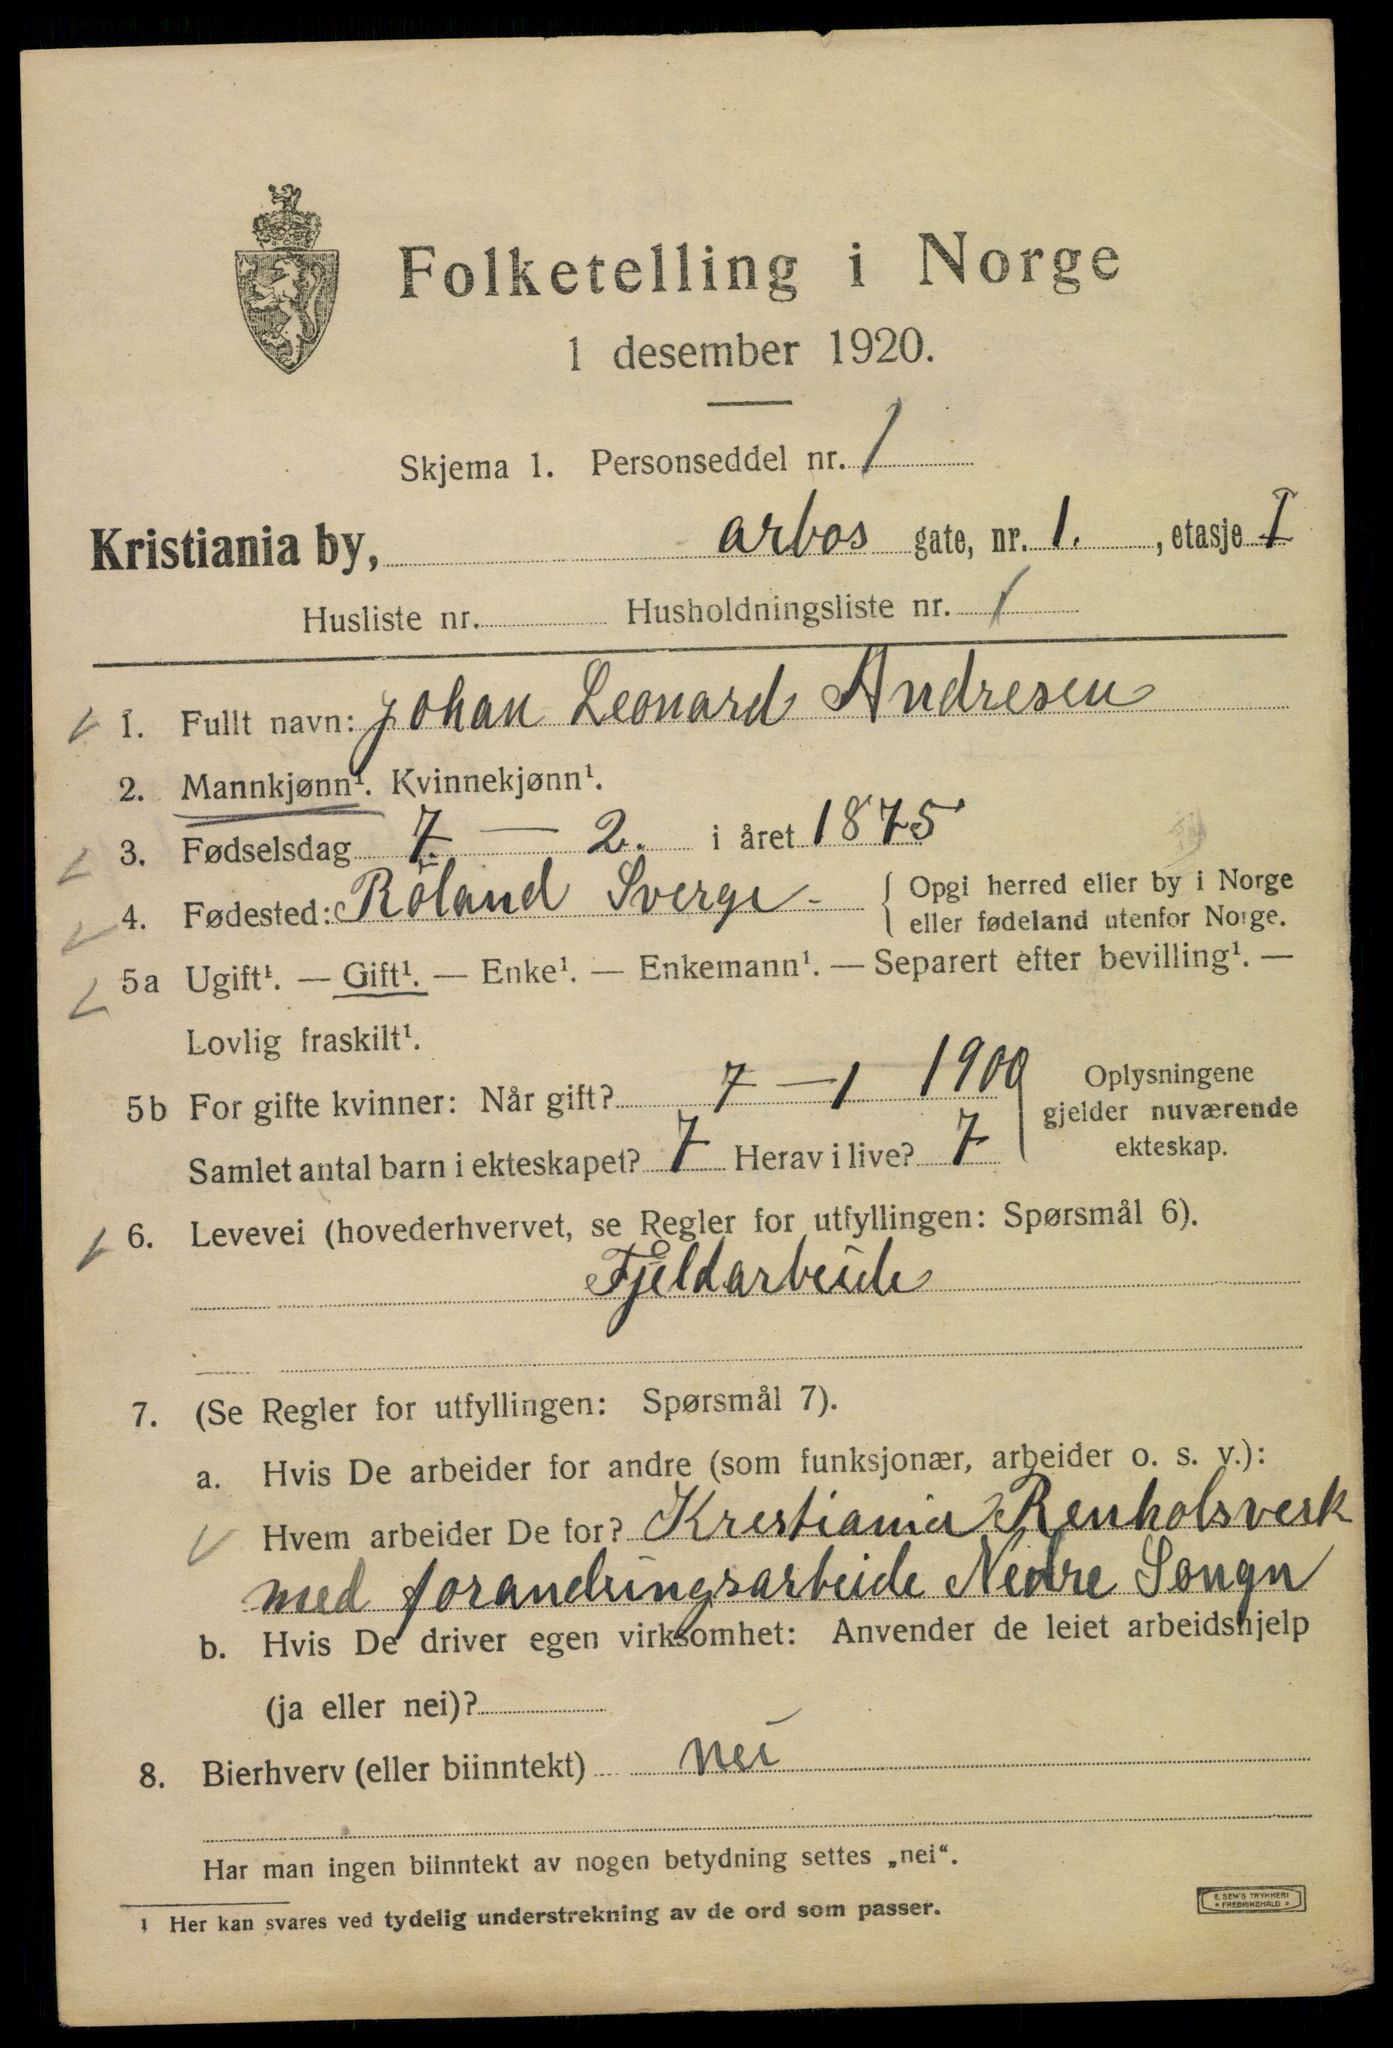 Folketelling i Norge
1 desember 1920.
Skjema 1. Personseddel nr. 1
Kristiania by, arbos gate, nr. 1. , etasje I
Husliste nr. Husholdningsliste nr. 1
1. Fullt navn: Johan Leonard Andresen
2. Mannkjønn¹. Kvinnekjønn¹.
3. Fødselsdag 7. — 2. i året 1875
4. Fødested: Röland Sverge - { Opgi herred eller by i Norge
eller fødeland utenfor Norge.
5a Ugift¹. — Gift¹. — Enke¹. — Enkemann¹. — Separert efter bevilling¹. —
Lovlig fraskilt¹.
5b For gifte kvinner: Når gift? 7 — 1 1900
Samlet antal barn i ekteskapet? 7 Herav i live? 7
Oplysningene
gjelder nuværende
ekteskap.
6. Levevei (hovederhvervet, se Regler for utfyllingen: Spørsmål 6).
Fjeldarbeide
7. (Se Regler for utfyllingen: Spørsmål 7).
a. Hvis De arbeider for andre (som funksjonær, arbeider o. s. v.):
Hvem arbeider De for? Krestiania Renholsverk
med forandringsarbeide Nedre Songn
b. Hvis De driver egen virksomhet: Anvender de leiet arbeidshjelp
(ja eller nei)?
8. Bierhverv (eller biinntekt) nei
Har man ingen biinntekt av nogen betydning settes „nei“.
¹ Her kan svares ved tydelig understrekning av de ord som passer.
E. SEM'S TRYKKERI
* FREDRIKSHALD *